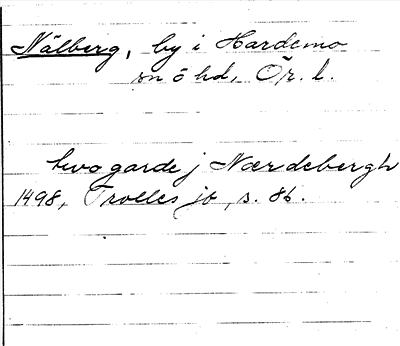 Nälberg, by i Hardemo
sn o hd, Ör. l.
two garde j Nærdebergh
1498, Trolles jb, s. 86.